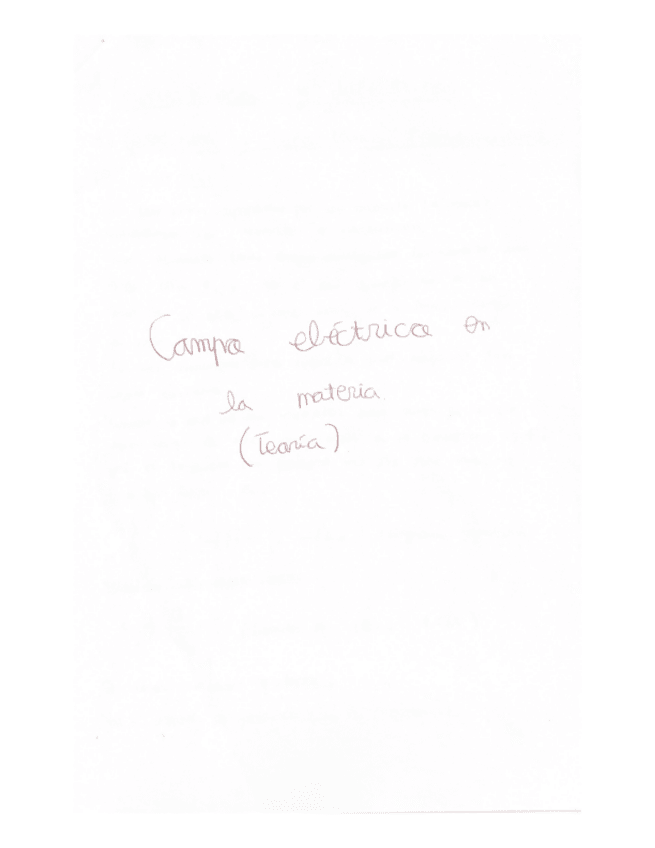 Campo eléctrico en
la materia
(Teoría)